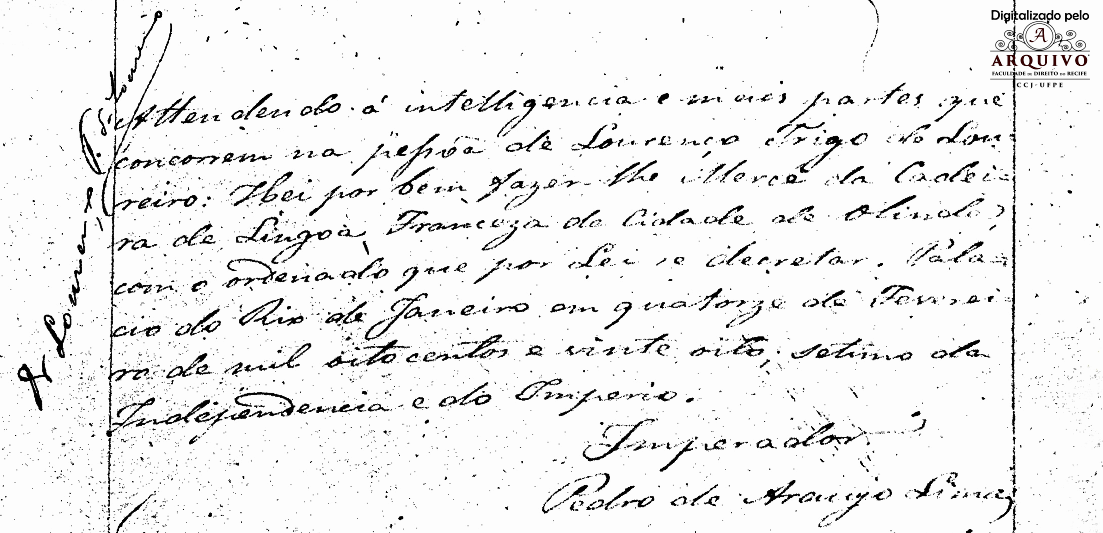 Digitalizado pelo
ARQUIVO
FACULDADE DE DIREITO DO RECIFE
CCJ-UFPE
Attendendo á intelligencia e mais partes que
concorrem na pessôa de Lourenço Trigo do Lou=
reiro: Hei por bem fazer-lhe Mercê da Cadei=
ra de Lingoa Franceza da Cidade de Olinda,
com o ordenado que por Lei se decretar. Pala=
cio do Rio de Janeiro em quatorze de Feverei
ro de mil oitocentos e vinte oito, setimo da
Independencia e do Imperio.
Imperador
Pedro de Araujo Lima
Lourenço T. de Loureiro